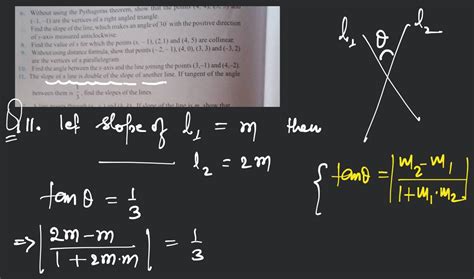 6. Without using the Pythagoras theorem, show that the points (4, 4), (3, 5) and
(-1, -1) are the vertices of a right angled triangle.
Find the slope of the line, which makes an angle of 30° with the positive direction
of y-axis measured anticlockwise.
8. Find the value of x for which the points (x, -1), (2,1) and (4, 5) are collinear.
9. Without using distance formula, show that points (-2, -1), (4, 0), (3, 3) and (-3, 2)
are the vertices of a parallelogram.
10. Find the angle between the x-axis and the line joining the points (3,-1) and (4,-2).
11. The slope of a line is double of the slope of another line. If tangent of the angle
between them is 1/3, find the slopes of the lines.
l₁ θ l₂
Q11. let slope of l₁ = m then
l₂ = 2m
tanθ = 1/3
⇒ |2m-m / 1+2m·m| = 1/3
{ tanθ = |m₂-m₁ / 1+m₁·m₂|